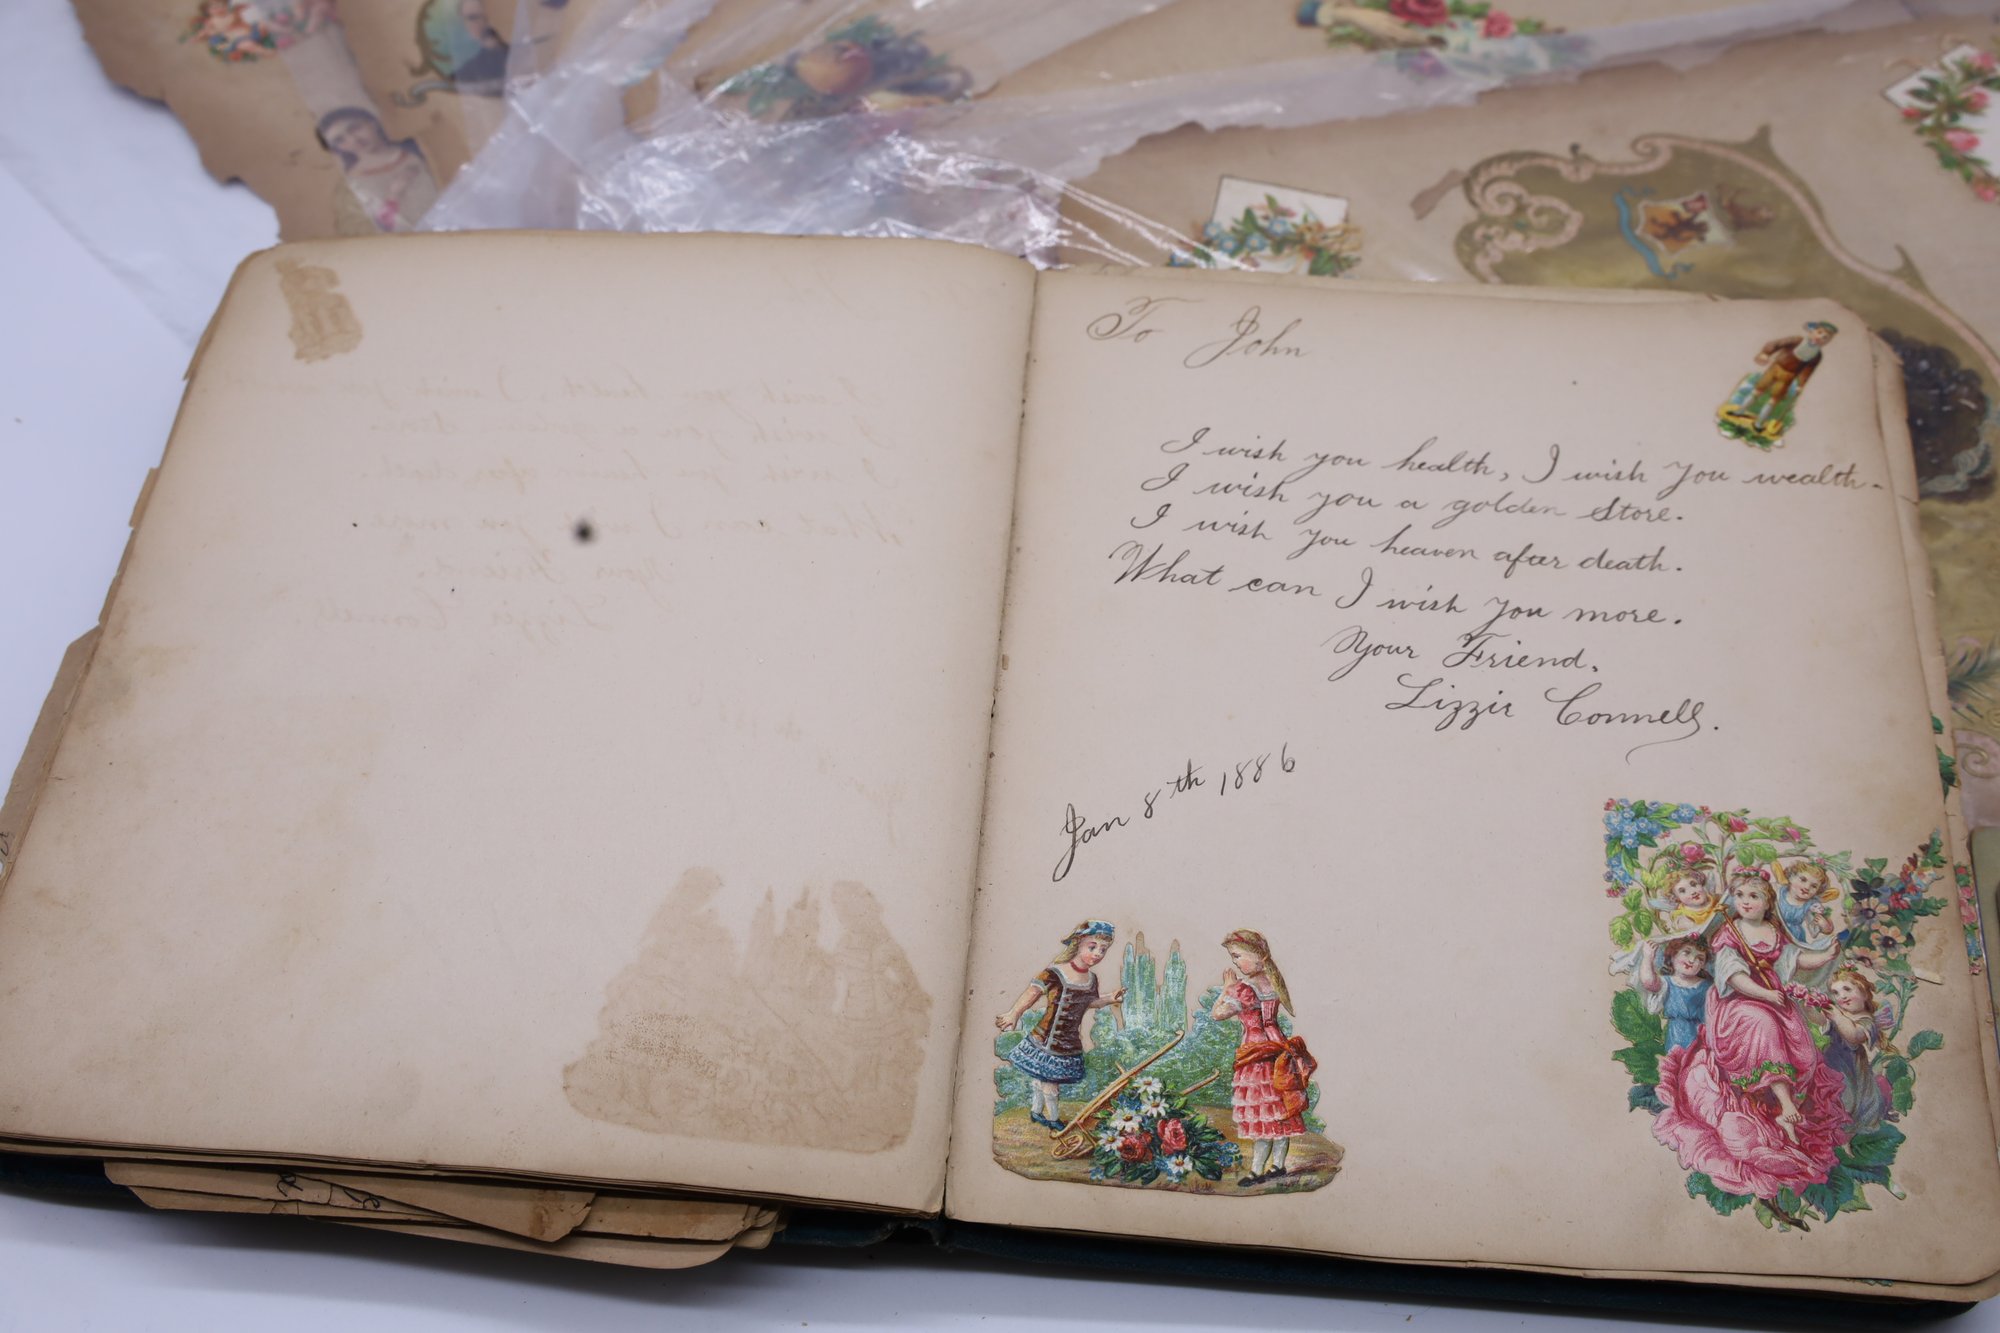 To John
I wish you health, I wish you wealth.
I wish you a golden Store.
I wish you heaven after death.
What can I wish you more.
Your Friend.
Lizzie Connell.
Jan 8th 1886